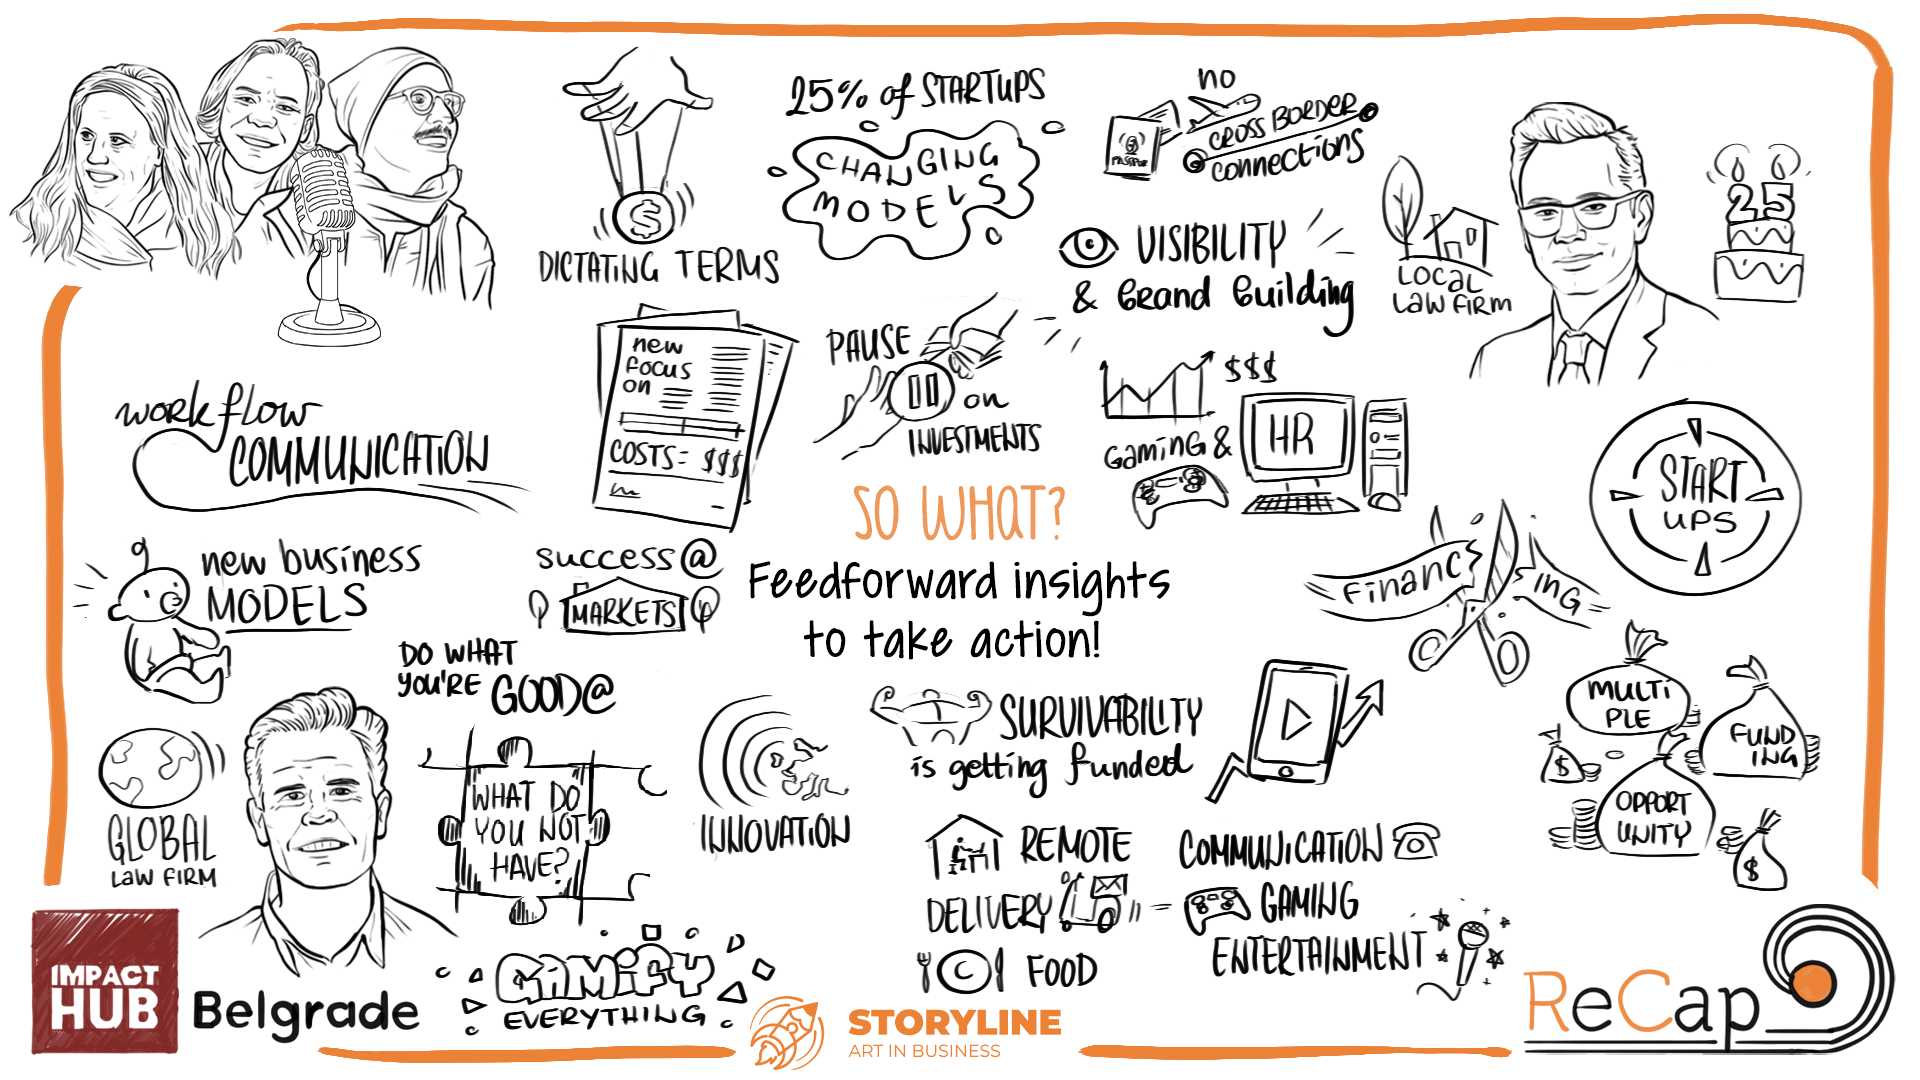 DICTATING TERMS
25% of STARTUPS
CHANGING
MODELS
no
CROSS BORDER
connections
PASSPOR
VISIBILITY
& Brand Building
LOCAL
LAW FIRM
25
workflow
COMMUNICATION
new
focus
on
COSTS = $$$
PAUSE
on
INVESTMENTS
$$$
GaminG &
HR
START
UPS
SO WHAT?
Feedforward insights
to take action!
new business
MODELS
success @
MARKETS
DO WHAT
YOU'RE GOOD@
Financ
ing
MULTI
PLE
FUND
ING
$
OPPORT
UNITY
$
GLOBAL
LAW FIRM
WHAT DO
YOU NOT
HAVE?
INNOVATION
SURVIVABILITY
is getting funded
REMOTE
DELIVERY
FOOD
COMMUNICATION
GAMING
ENTERTAINMENT
GAMIFY
EVERYTHING
IMPACT
HUB
Belgrade
STORYLINE
ART IN BUSINESS
ReCap